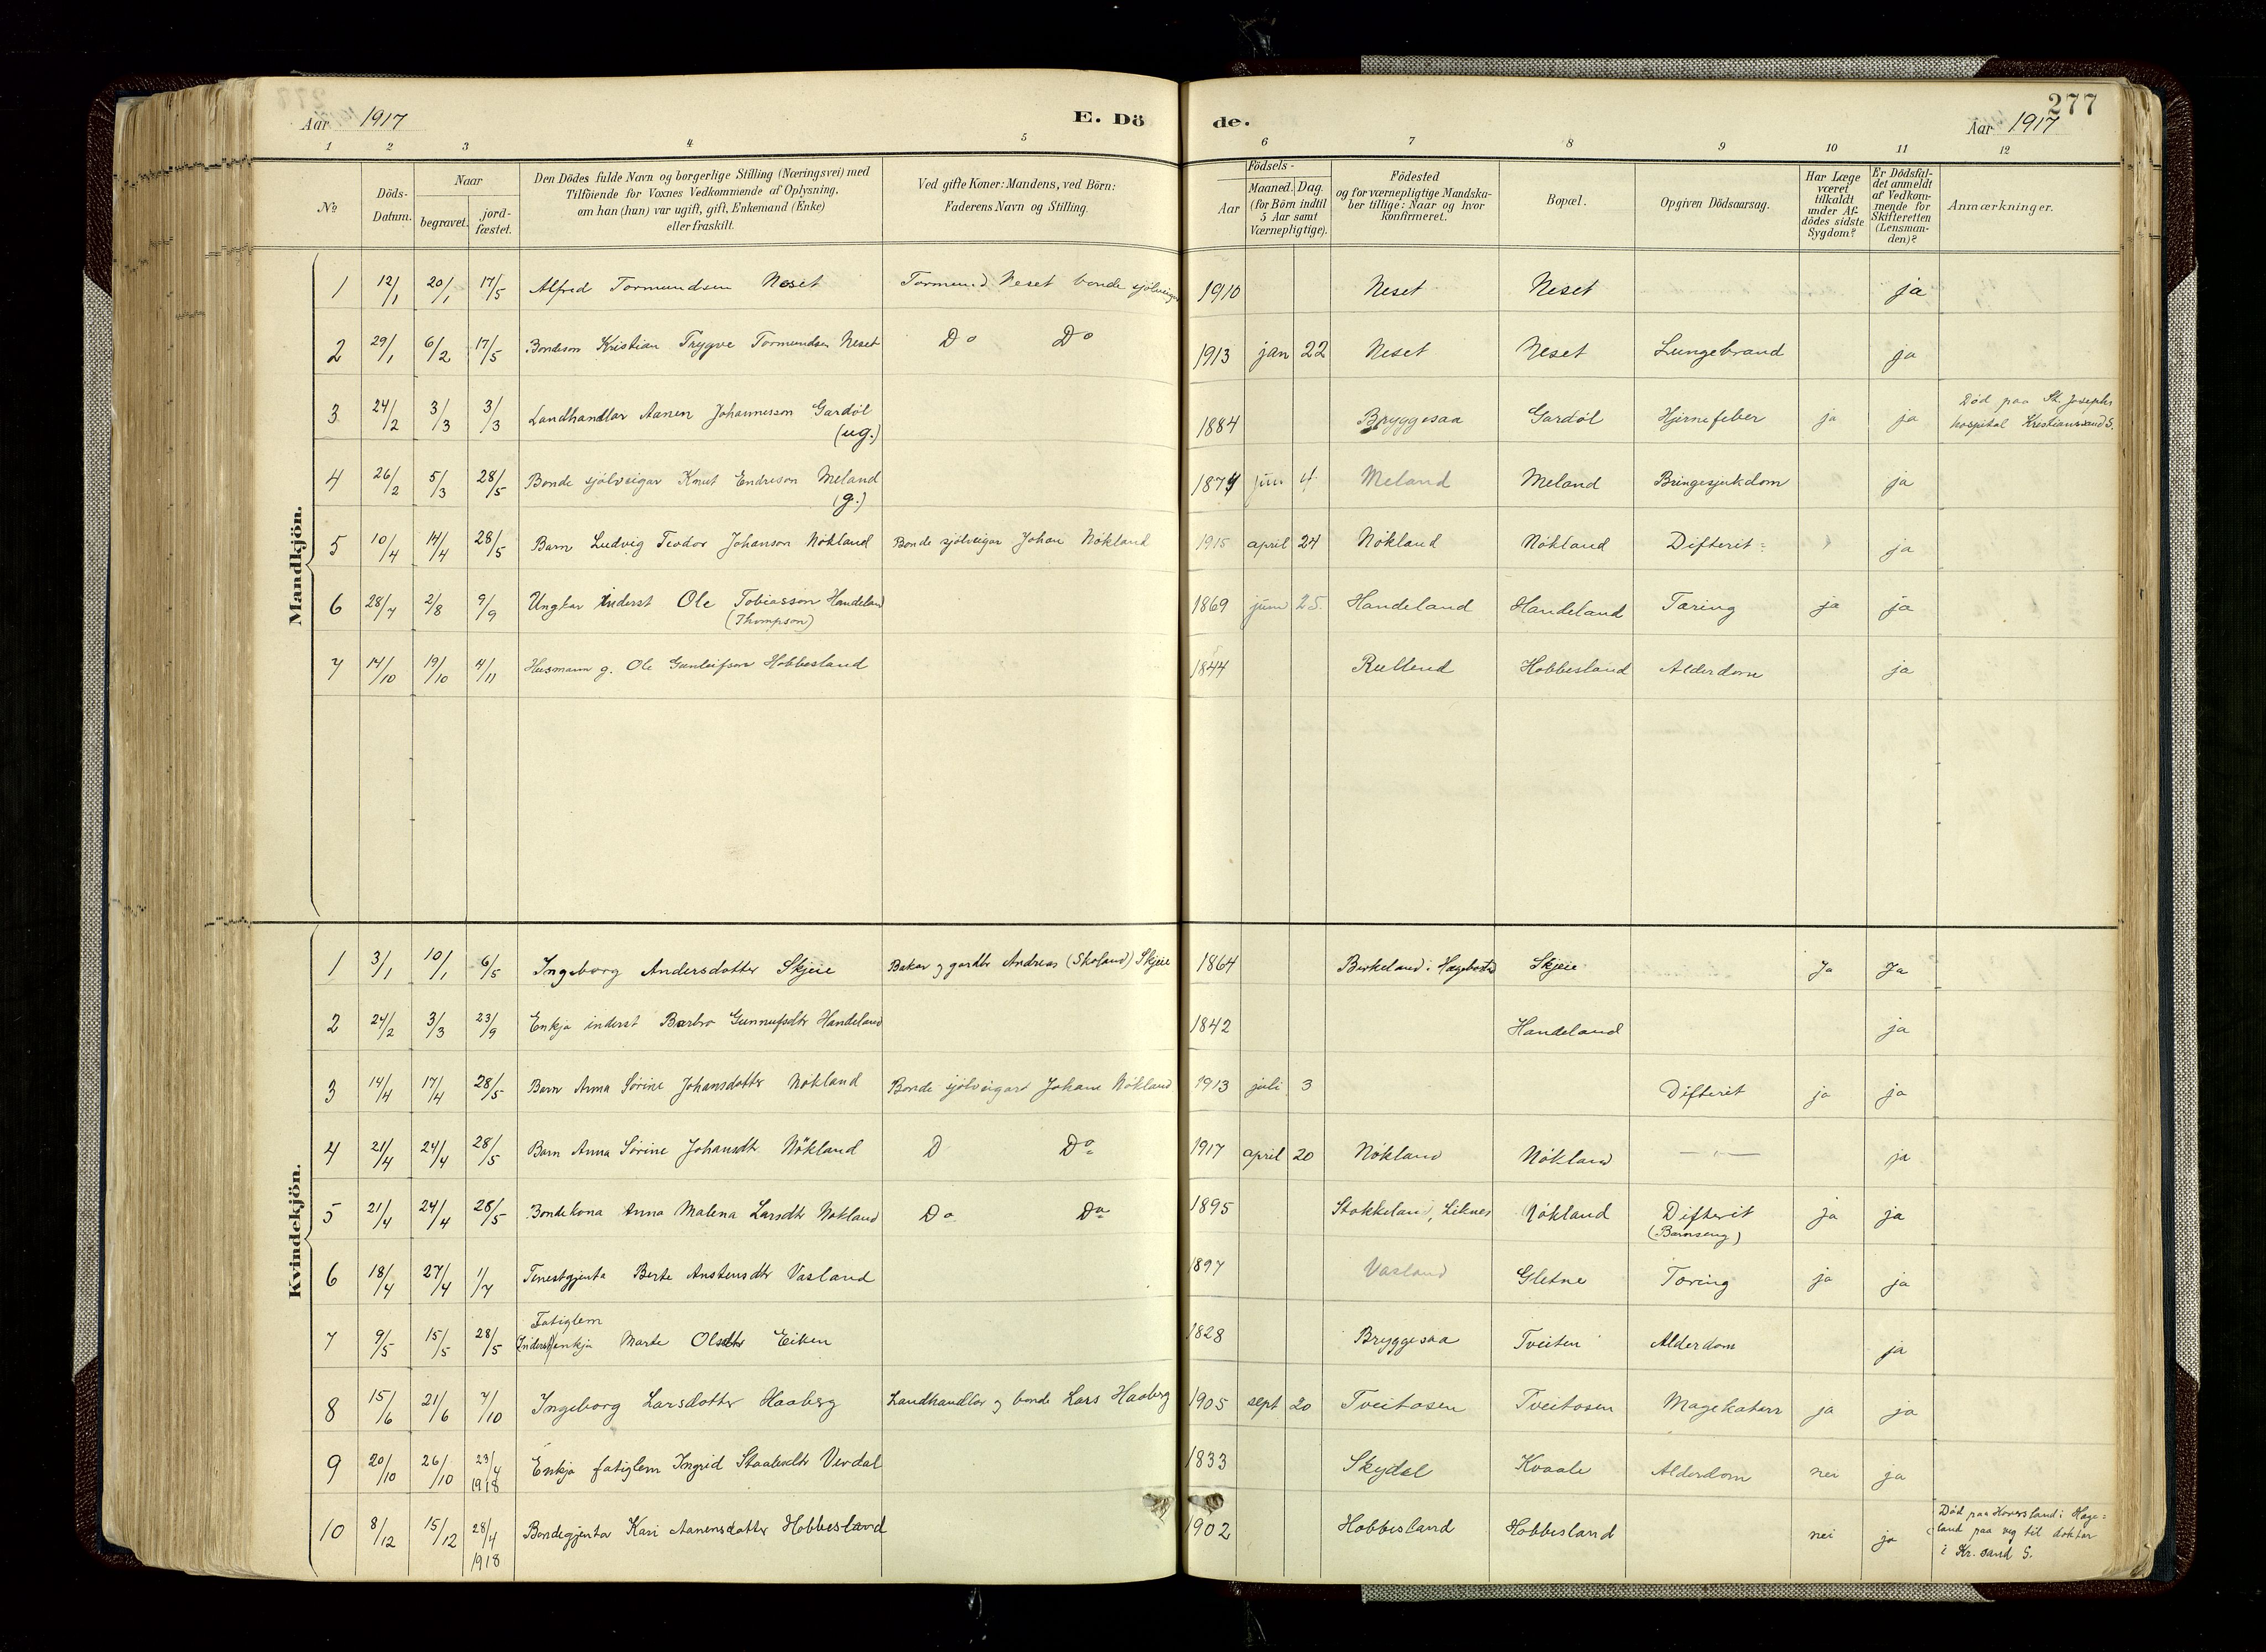 277
Aar 1917 E. Dö de. Aar 1917
1 2 3 4 5 6 7 8 9 10 11 12
№
Döds-
Datum.
Naar
begravet.
jord-
fæstet.
Den Dödes fulde Navn og borgerlige Stilling (Næringsvei) med
Tilföiende for Voxnes Vedkommende af Oplysning,
om han (hun) var ugift, gift, Enkemand (Enke)
eller fraskilt.
Ved gifte Koner: Mandens, ved Börn:
Faderens Navn og Stilling.
Födsels-
Aar
Maaned. Dag.
(for Börn indtil
5 Aar samt
Værnepligtige).
Födested
og for værnepligtige Mandska-
ber tillige: Naar og hvor
konfirmeret.
Bopæl.
Opgiven Dödsaarsag.
Har Læge
været
tilkaldt
under Af-
dödes sidste
Sygdom?
Er Dödsfal-
det anmeldt
af Vedkom-
mende for
Skifteretten
(Lensman-
den)?
Anmærkninger.
Mandkjön.
1 12/1 20/1 17/5 Alfred Tormundsen Neset Tormund Neset bonde sjölveigar 1910 Neset Neset ja
2 29/1 6/2 17/5 Bondeson Kristian Trygve Tormundsen Neset Do Do 1913 jan 22 Neset Neset Lungebrand ja
3 24/2 3/3 3/3 Landhandlar Aanen Johannesson Gardöl (ug.) 1884 Bryggesaa Gardöl Hjernefeber ja ja Död paa St. Josephs
hospital Kristianssand S.
4 26/2 5/3 28/5 Bonde sjölveigar Knut Endreson Meland (g.) 1874 juni 4 Meland Meland Bringesjukdom ja
5 10/4 14/4 28/5 Barn Ludvig Teodor Johanson Nökland Bonde sjölveigar Johan Nökland 1915 april 24 Nökland Nökland Difterit ja
6 28/7 2/8 9/9 Ungkar inderst Ole Tobiasson Handeland
(Thompson) 1869 juni 25. Handeland Handeland Tæring ja ja
7 14/10 19/10 4/11 Husmann g. Ole Gunleifson Hobbesland 1844 Rullend Hobbesland Alderdom ja
Kvindekjön.
1 3/1 10/1 6/5 Ingeborg Andersdotter Skjeie Bakar og gardbr Andreas (Skoland) Skjeie 1864 Birkeland i Hægebostad Skjeie Ja Ja
2 24/2 3/3 23/9 Enkja inderst Barbro Gunnufsdtr Handeland 1842 Handeland ja
3 14/4 17/4 28/5 Barn Anna Sörine Johansdotter Nökland Bonde sjölveigard Johan Nökland 1913 juli 3 Difterit ja ja
4 21/4 24/4 28/5 Barn Anna Sörine Johansdtr Nökland D Do 1917 april 20 Nökland Nökland — " — ja
5 21/4 24/4 28/5 Bondekona Anna Malena Larsdtr Nökland Do Do 1895 Stokkeland, Liknes Nökland Difterit
(Barnseng) ja ja
6 18/4 27/4 1/7 Tenestgjenta Berte Anstensdtr Vasland 1897 Vasland Gletne Tæring ja ja
7 9/5 15/5 28/5 Fatiglem
(Inderst)enkja Marte Olsdtr Eiken 1828 Bryggesaa Tveiten Alderdom ja
8 15/6 21/6 7/10 Ingeborg Larsdotter Haaberg Landhandlar og bonde Lars Haaberg 1905 sept 20 Tveitosen Tveitosen Magekatarr ja ja
9 20/10 26/10 23/4 1918 Enkja fatiglem Ingrid Staalesdtr Verdal 1833 Skejdal Kvaale Alderdom nei ja
10 8/12 15/12 28/4 1918 Bondegjenta Kari Aanensdotter Hobbesland 1902 Hobbesland Hobbesland nei ja Död paa Koversland i Hæge=
land paa veg til doktor
i Kr. sand S.